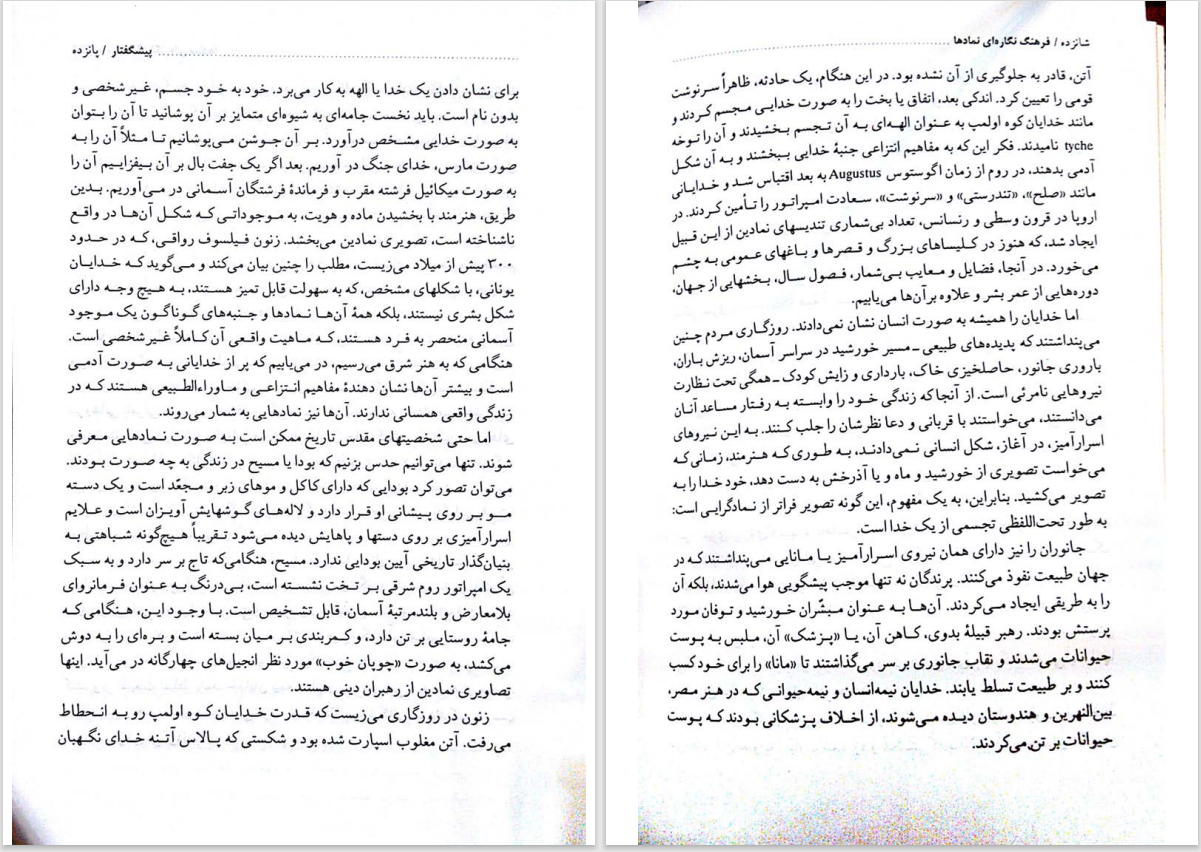 پیشگفتار / پانزده
برای نشان دادن یک خدا یا الهه به کار می‌برد. خود به خود جسم، غیرشخصی و
بدون نام است. باید نخست جامه‌ای به شیوه‌ای متمایز بر آن پوشانید تا آن را بتوان
به صورت خدایی مشخص درآورد. بر آن جوشن می‌پوشانیم تا مثلاً آن را به
صورت مارس، خدای جنگ در آوریم. بعد اگر یک جفت بال بر آن بیفزاییم آن را
به صورت میکائیل فرشته مقرب و فرماندهٔ فرشتگان آسمانی در می‌آوریم. بدین
طریق، هنرمند با بخشیدن ماده و هویت، به موجوداتی که شکل آن‌ها در واقع
ناشناخته است، تصویری نمادین می‌بخشد. زنون فیلسوف رواقی، که در حدود
۳۰۰ پیش از میلاد می‌زیست، مطلب را چنین بیان می‌کند و می‌گوید که خدایان
یونانی، با شکلهای مشخص، که به سهولت قابل تمیز هستند، به هیچ وجه دارای
شکل بشری نیستند، بلکه همهٔ آن‌ها نمادها و جنبه‌های گوناگون یک موجود
آسمانی منحصر به فرد هستند، که ماهیت واقعی آن کاملاً غیرشخصی است.
هنگامی که به هنر شرق می‌رسیم، در می‌یابیم که پر از خدایانی به صورت آدمی
است و بیشتر آن‌ها نشان دهندهٔ مفاهیم انتزاعی و ماوراءالطبیعی هستند که در
زندگی واقعی همسانی ندارند. آن‌ها نیز نمادهایی به شمار می‌روند.
اما حتی شخصیتهای مقدس تاریخ ممکن است به صورت نمادهایی معرفی
شوند. تنها می‌توانیم حدس بزنیم که بودا یا مسیح در زندگی به چه صورت بودند.
می‌توان تصور کرد بودایی که دارای کاکل و موهای زبر و مجعّد است و یک دسته
مو بر روی پیشانی او قرار دارد و لاله‌های گوشهایش آویزان است و علایم
اسرارآمیزی بر روی دستها و پاهایش دیده می‌شود تقریباً هیچ‌گونه شباهتی به
بنیان‌گذار تاریخی آیین بودایی ندارد. مسیح، هنگامی‌که تاج بر سر دارد و به سبک
یک امپراتور روم شرقی بر تخت نشسته است، بی‌درنگ به عنوان فرمانروای
بلامعارض و بلندمرتبهٔ آسمان، قابل تشخیص است. با وجود این، هنگامی که
جامهٔ روستایی بر تن دارد، و کمربندی بر میان بسته است و بره‌ای را به دوش
می‌کشد، به صورت «چوپان خوب» مورد نظر انجیل‌های چهارگانه در می‌آید. اینها
تصاویری نمادین از رهبران دینی هستند.
زنون در روزگاری می‌زیست که قدرت خدایان کوه اولمپ رو به انحطاط
می‌رفت. آتن مغلوب اسپارت شده بود و شکستی که پالاس آتنه خدای نگهبان
شانزده / فرهنگ نگاره‌ای نمادها
آتن، قادر به جلوگیری از آن نشده بود. در این هنگام، یک حادثه، ظاهراً سرنوشت
قومی را تعیین کرد. اندکی بعد، اتفاق یا بخت را به صورت خدایی مجسم کردند و
مانند خدایان کوه اولمپ به عنوان الهه‌ای به آن تجسم بخشیدند و آن را توخه
tyche نامیدند. فکر این که به مفاهیم انتزاعی جنبهٔ خدایی ببخشند و به آن شکل
آدمی بدهند، در روم از زمان اگوستوس Augustus به بعد اقتباس شد و خدایانی
مانند «صلح»، «تندرستی» و «سرنوشت»، سعادت امپراتور را تأمین کردند. در
اروپا در قرون وسطی و رنسانس، تعداد بی‌شماری تندیسهای نمادین از این قبیل
ایجاد شد، که هنوز در کلیساهای بزرگ و قصرها و باغهای عمومی به چشم
می‌خورد. در آنجا، فضایل و معایب بی‌شمار، فصول سال، بخشهایی از جهان،
دوره‌هایی از عمر بشر و علاوه بر آن‌ها می‌یابیم.
اما خدایان را همیشه به صورت انسان نشان نمی‌دادند. روزگاری مردم چنین
می‌پنداشتند که پدیده‌های طبیعی ــ مسیر خورشید در سراسر آسمان، ریزش باران،
باروری جانور، حاصلخیزی خاک، بارداری و زایش کودک ــ همگی تحت نظارت
نیروهایی نامرئی است. از آنجا که زندگی خود را وابسته به رفتار مساعد آنان
می‌دانستند، می‌خواستند با قربانی و دعا نظرشان را جلب کنند. به این نیروهای
اسرارآمیز، در آغاز، شکل انسانی نمی‌دادند، به طوری که هنرمند، زمانی که
می‌خواست تصویری از خورشید و ماه و یا آذرخش به دست دهد، خود خدا را به
تصویر می‌کشید. بنابراین، به یک مفهوم، این گونه تصویر فراتر از نمادگرایی است:
به طور تحت‌اللفظی تجسمی از یک خدا است.
جانوران را نیز دارای همان نیروی اسرارآمیز یا مانایی می‌پنداشتند که در
جهان طبیعت نفوذ می‌کنند. پرندگان نه تنها موجب پیشگویی هوا می‌شدند، بلکه آن
را به طریقی ایجاد می‌کردند. آن‌ها به عنوان مبشّران خورشید و توفان مورد
پرستش بودند. رهبر قبیلهٔ بدوی، کاهن آن، یا «پزشک» آن، ملبس به پوست
حیوانات می‌شدند و نقاب جانوری بر سر می‌گذاشتند تا «مانا» را برای خود کسب
کنند و بر طبیعت تسلط یابند. خدایان نیمه‌انسان و نیمه‌حیوانی که در هنر مصر،
بین‌النهرین و هندوستان دیده می‌شوند، از اخلاف پزشکانی بودند که پوست
حیوانات بر تن می‌کردند.